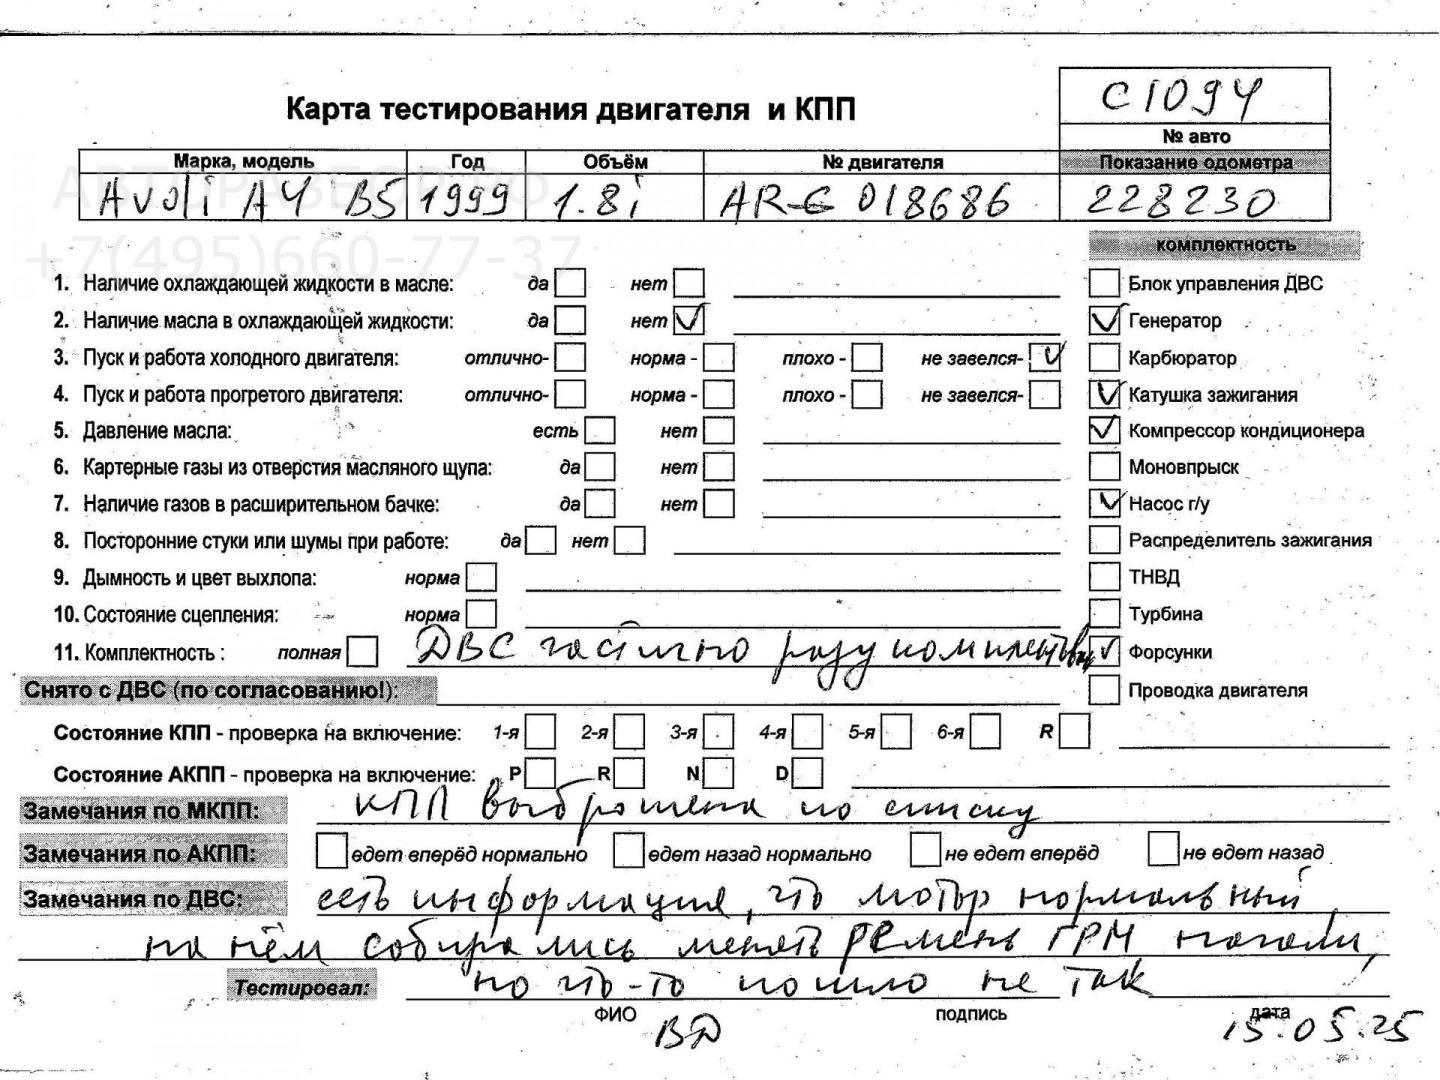 С1094
Карта тестирования двигателя и КПП
№ авто
Марка, модель Год Объём № двигателя Показание одометра
АВТОРАЗБОР.РФ
Audi A4 B5 1999 1.8i ARG 018686 228230
+7(495)660-77-37
комплектность
1. Наличие охлаждающей жидкости в масле: да нет Блок управления ДВС
2. Наличие масла в охлаждающей жидкости: да нет ✓ ✓ Генератор
3. Пуск и работа холодного двигателя: отлично- норма - плохо - не завелся- ✓ Карбюратор
4. Пуск и работа прогретого двигателя: отлично- норма - плохо - не завелся- ✓ Катушка зажигания
5. Давление масла: есть нет ✓ Компрессор кондиционера
6. Картерные газы из отверстия масляного щупа: да нет Моновпрыск
7. Наличие газов в расширительном бачке: да нет ✓ Насос г/у
8. Посторонние стуки или шумы при работе: да нет Распределитель зажигания
9. Дымность и цвет выхлопа: норма ТНВД
10. Состояние сцепления: норма Турбина
11. Комплектность : полная ДВС частично разукомплектован ✓ Форсунки
Снято с ДВС (по согласованию!): Проводка двигателя
Состояние КПП - проверка на включение: 1-я 2-я 3-я 4-я 5-я 6-я R
Состояние АКПП - проверка на включение: P R N D
Замечания по МКПП: КПП выброшена по списку
Замечания по АКПП: едет вперёд нормально едет назад нормально не едет вперёд не едет назад
Замечания по ДВС: есть информация, что мотор нормальный
на нём собирались менять ремень ГРМ начали,
Тестировал: но что-то пошло не так
ФИО подпись дата
ВД 15.05.25